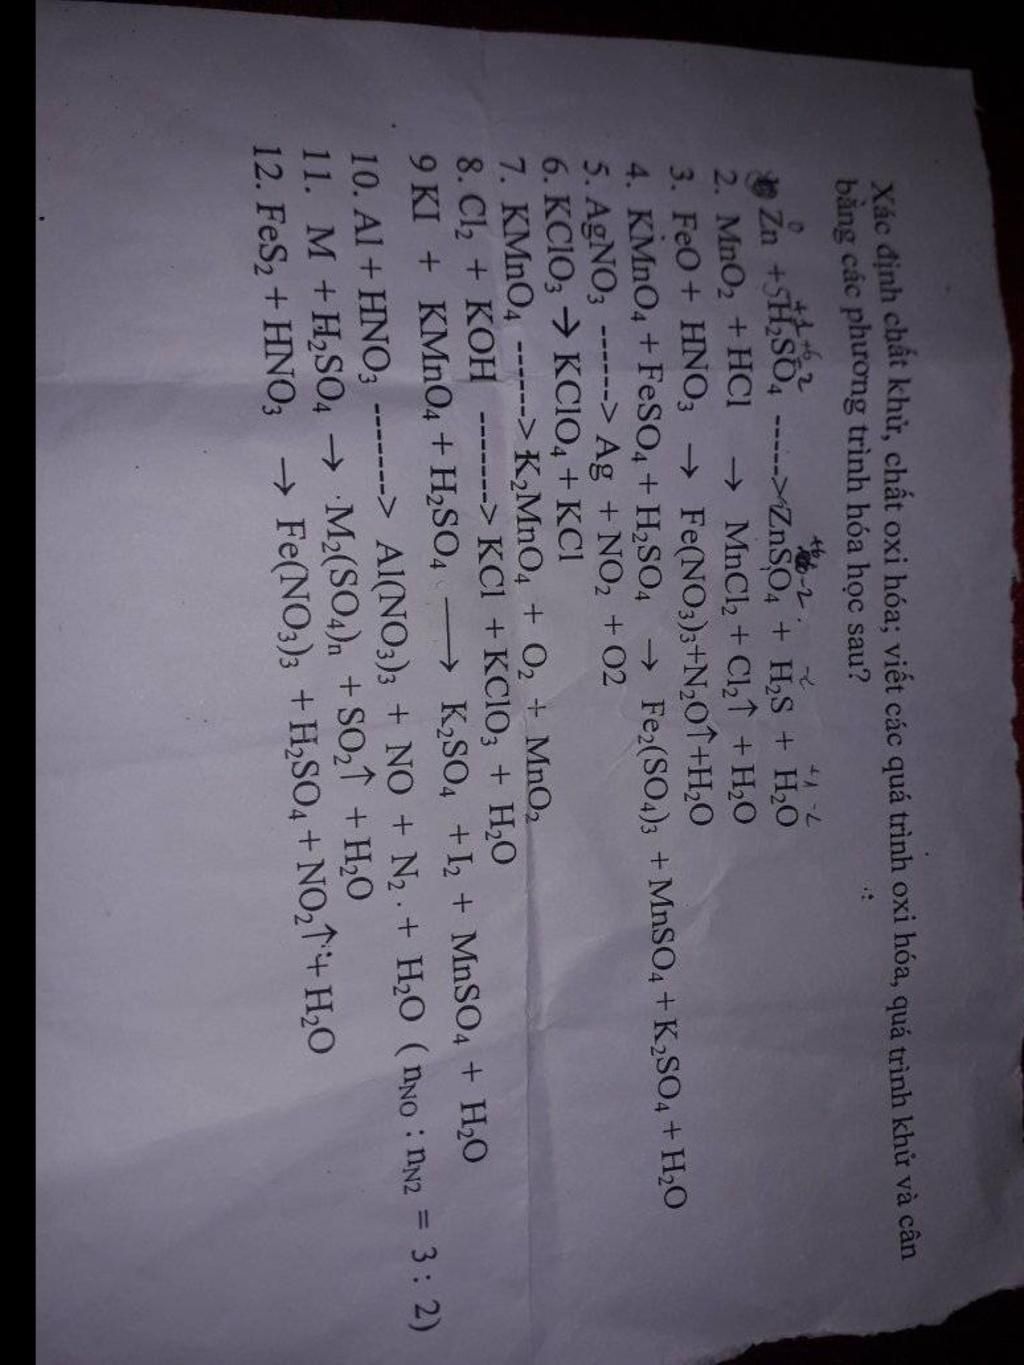 Xác định chất khử, chất oxi hóa; viết các quá trình oxi hóa, quá trình khử và cân
bằng các phương trình hóa học sau?
0 +1 +6 -2 +6 -2 -2 +1 -2
Zn + 5H₂SO₄ -----> ZnSO₄ + H₂S + H₂O
2. MnO₂ + HCl → MnCl₂ + Cl₂↑ + H₂O
3. FeO + HNO₃ → Fe(NO₃)₃+N₂O↑+H₂O
4. KMnO₄ + FeSO₄ + H₂SO₄ → Fe₂(SO₄)₃ + MnSO₄ + K₂SO₄ + H₂O
5. AgNO₃ ------> Ag + NO₂ + O2
6. KClO₃ → KClO₄ + KCl
7. KMnO₄ ------> K₂MnO₄ + O₂ + MnO₂
8. Cl₂ + KOH -------> KCl + KClO₃ + H₂O
9 KI + KMnO₄ + H₂SO₄ ⟶ K₂SO₄ + I₂ + MnSO₄ + H₂O
10. Al + HNO₃ --------> Al(NO₃)₃ + NO + N₂ + H₂O ( nNO : nN2 = 3 : 2)
11. M + H₂SO₄ → M₂(SO₄)n + SO₂↑ + H₂O
12. FeS₂ + HNO₃ → Fe(NO₃)₃ + H₂SO₄ + NO₂↑ + H₂O